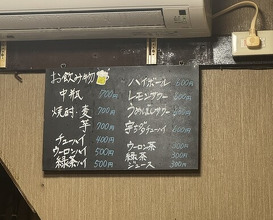 お飲み物
中瓶 700円
焼酎・麦 700円
芋 700円
チューハイ 400円
ウーロンハイ 500円
緑茶ハイ 500円
ハイボール 600円
レモンサワー 600円
うめぼしサワー
チューハイ 600円
ウーロン茶 300円
緑茶 300円
ジュース 300円